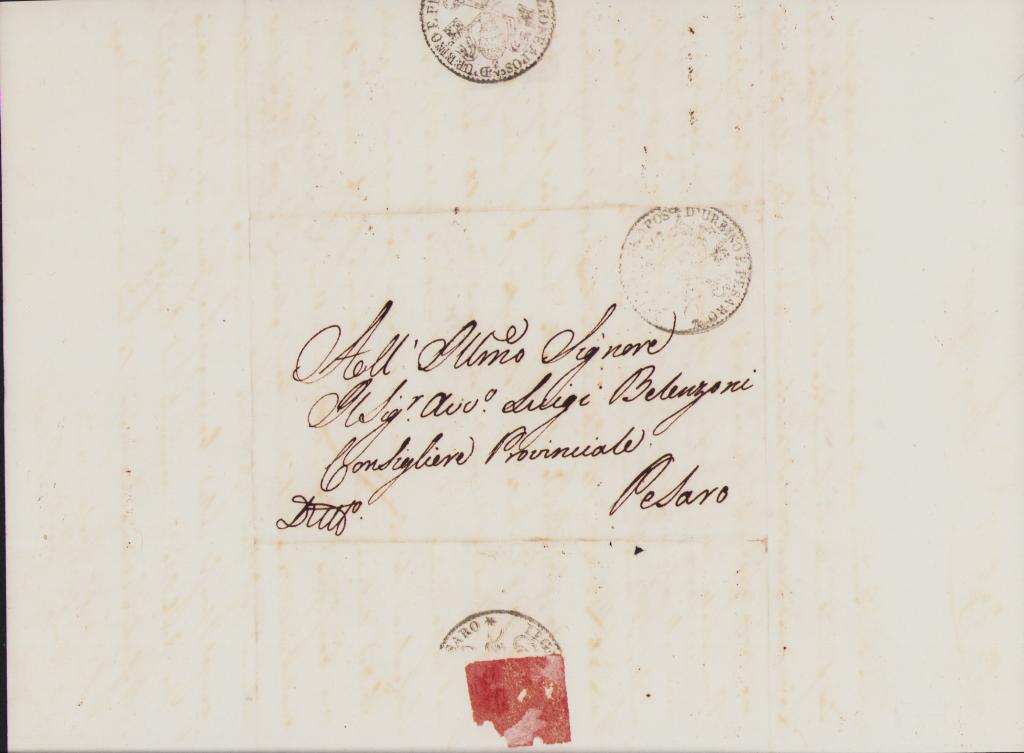 E APOS.ª D'URBINO E PE
APOS.ª D'URBINO E PESARO *
All' Illmo Signore
Il Sigr. Avvo. Luigi Belenzoni
Consigliere Provinciale
Pesaro
SARO * LEG